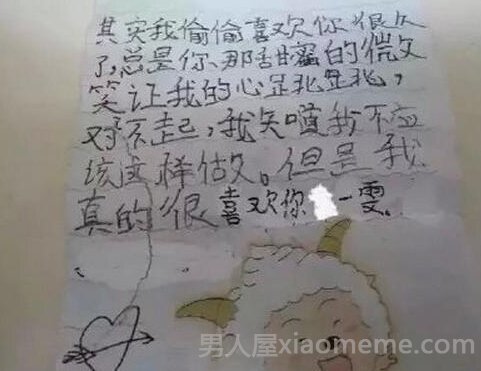 其实我偷偷喜欢你很久
了,总是你那甜蜜的微
笑让我的心跳跳,
对不起,我知道我不应
该这样做。但是我
真的很喜欢你 一雯。
男人屋xiaomeme.com